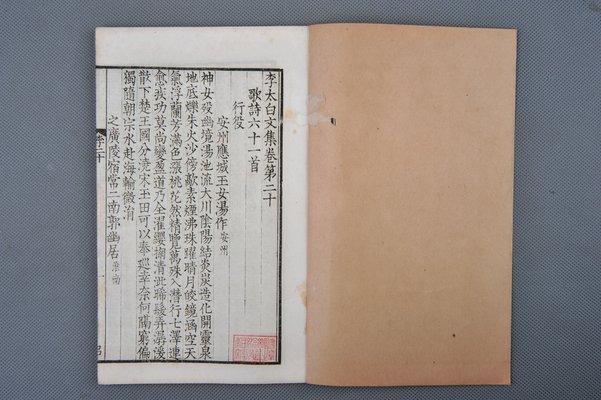 李太白文集卷第二十
歌詩六十一首
行役
安州應城玉女湯作 安州
神女歿幽境湯池流大川陰陽結炎炭造化開靈泉
地底爍朱火沙傍歊素煙沸珠躍晴月皎鏡涵空天
氣浮蘭芳滿色漲桃花然精覽萬殊入潛行七澤連
愈疾功莫尚變盈道乃全濯纓掬清泚晞髮弄潺湲
散下楚王國分澆宋玉田可以奉巡幸奈何隔窮偏
獨隨朝宗水赴海輸微涓
之廣陵宿常二南郭幽居 淮南
李二十